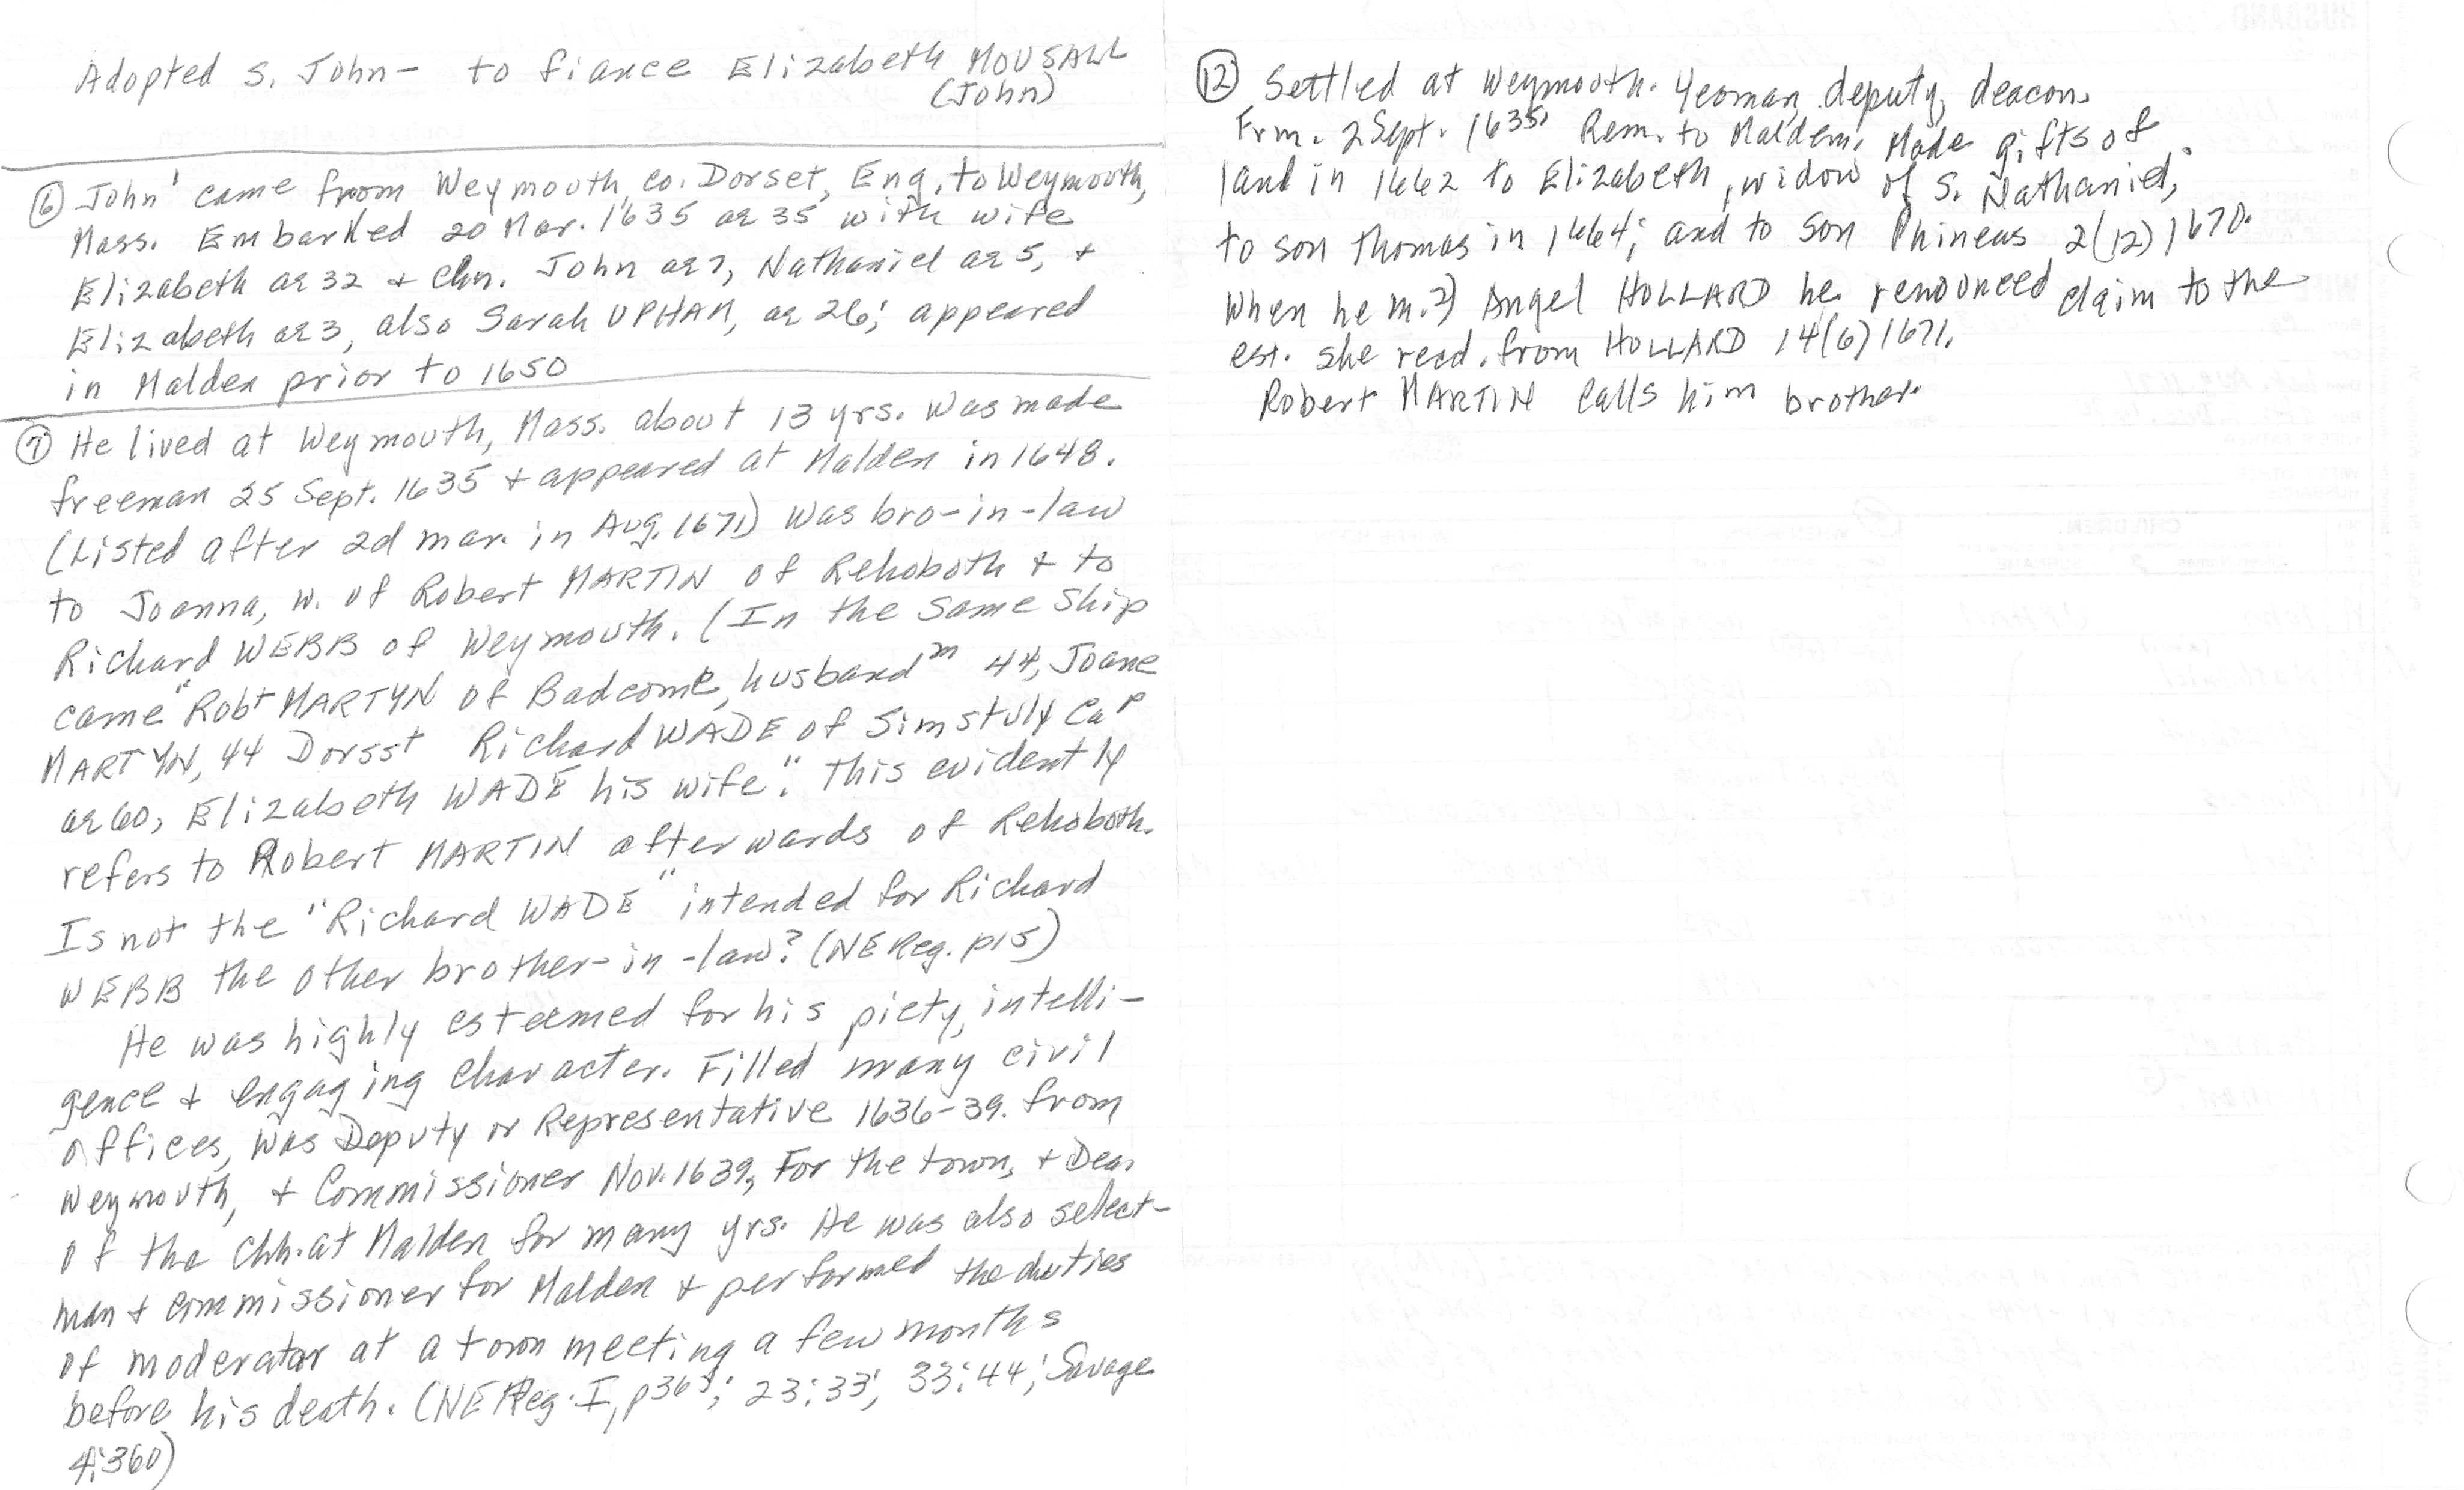 Adopted s. John - to fiance Elizabeth MOUSALL
(John)
⑥ John¹ came from Weymouth, co. Dorset, Eng. to Weymouth,
Mass. Embarked 20 Mar. 1635 ae 35 with wife
Elizabeth ae 32 + chn. John ae 7, Nathaniel ae 5, +
Elizabeth ae 3, also Sarah UPHAM, ae 26; appeared
in Malden prior to 1650
⑦ He lived at Weymouth, Mass. about 13 yrs. Was made
freeman 25 Sept. 1635 + appeared at Malden in 1648.
(Listed after 2d mar. in Aug. 1671) Was bro-in-law
to Joanna, w. of Robert MARTIN of Rehoboth + to
Richard WEBB of Weymouth. (In the same ship
came "Robt MARTYN of Badcome, husbandm 44, Joane
MARTYN, 44 Dorsst Richard WADE of Simstuly Cap
ae 60, Elizabeth WADE his wife". This evidently
refers to Robert MARTIN afterwards of Rehoboth.
Is not the "Richard WADE" intended for Richard
WEBB the other brother-in-law? (NE Reg. p15)
He was highly esteemed for his piety, intelli-
gence + engaging character. Filled many civil
offices, was Deputy or Representative 1636-39. from
Weymouth, + Commissioner Nov. 1639, For the town, + Dea.
of the Chh. at Malden for many yrs. He was also select-
man + commissioner for Malden + performed the duties
of moderator at a town meeting a few months
before his death. (NE Reg. I, p363; 23:33; 33:44; Savage
4:360)
⑫ Settled at Weymouth. Yeoman, deputy, deacon.
Frm. 2 Sept. 1635. Rem. to Malden. Made gifts of
land in 1662 to Elizabeth, widow of s. Nathaniel;
to son Thomas in 1664; and to son Phineas 2(12)1670.
When he m. 2) Angel HOLLARD he renounced claim to the
est. she recd. from HOLLARD 14(6)1671.
Robert MARTIN calls him brother.